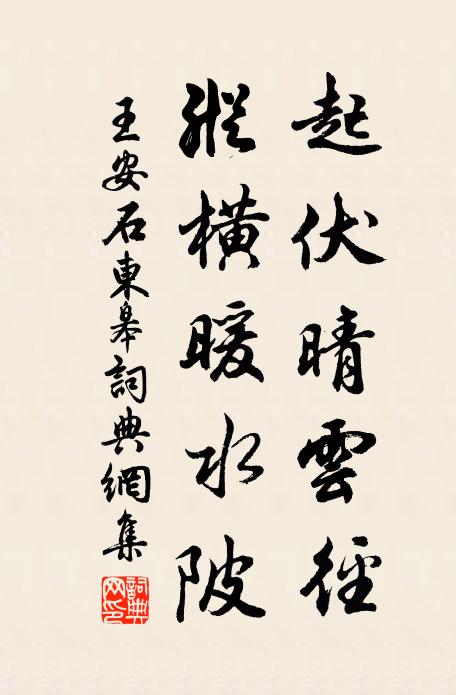 起伏晴雲徑
縱橫暖水陂
王安石東皋詞典網集
詞典网印